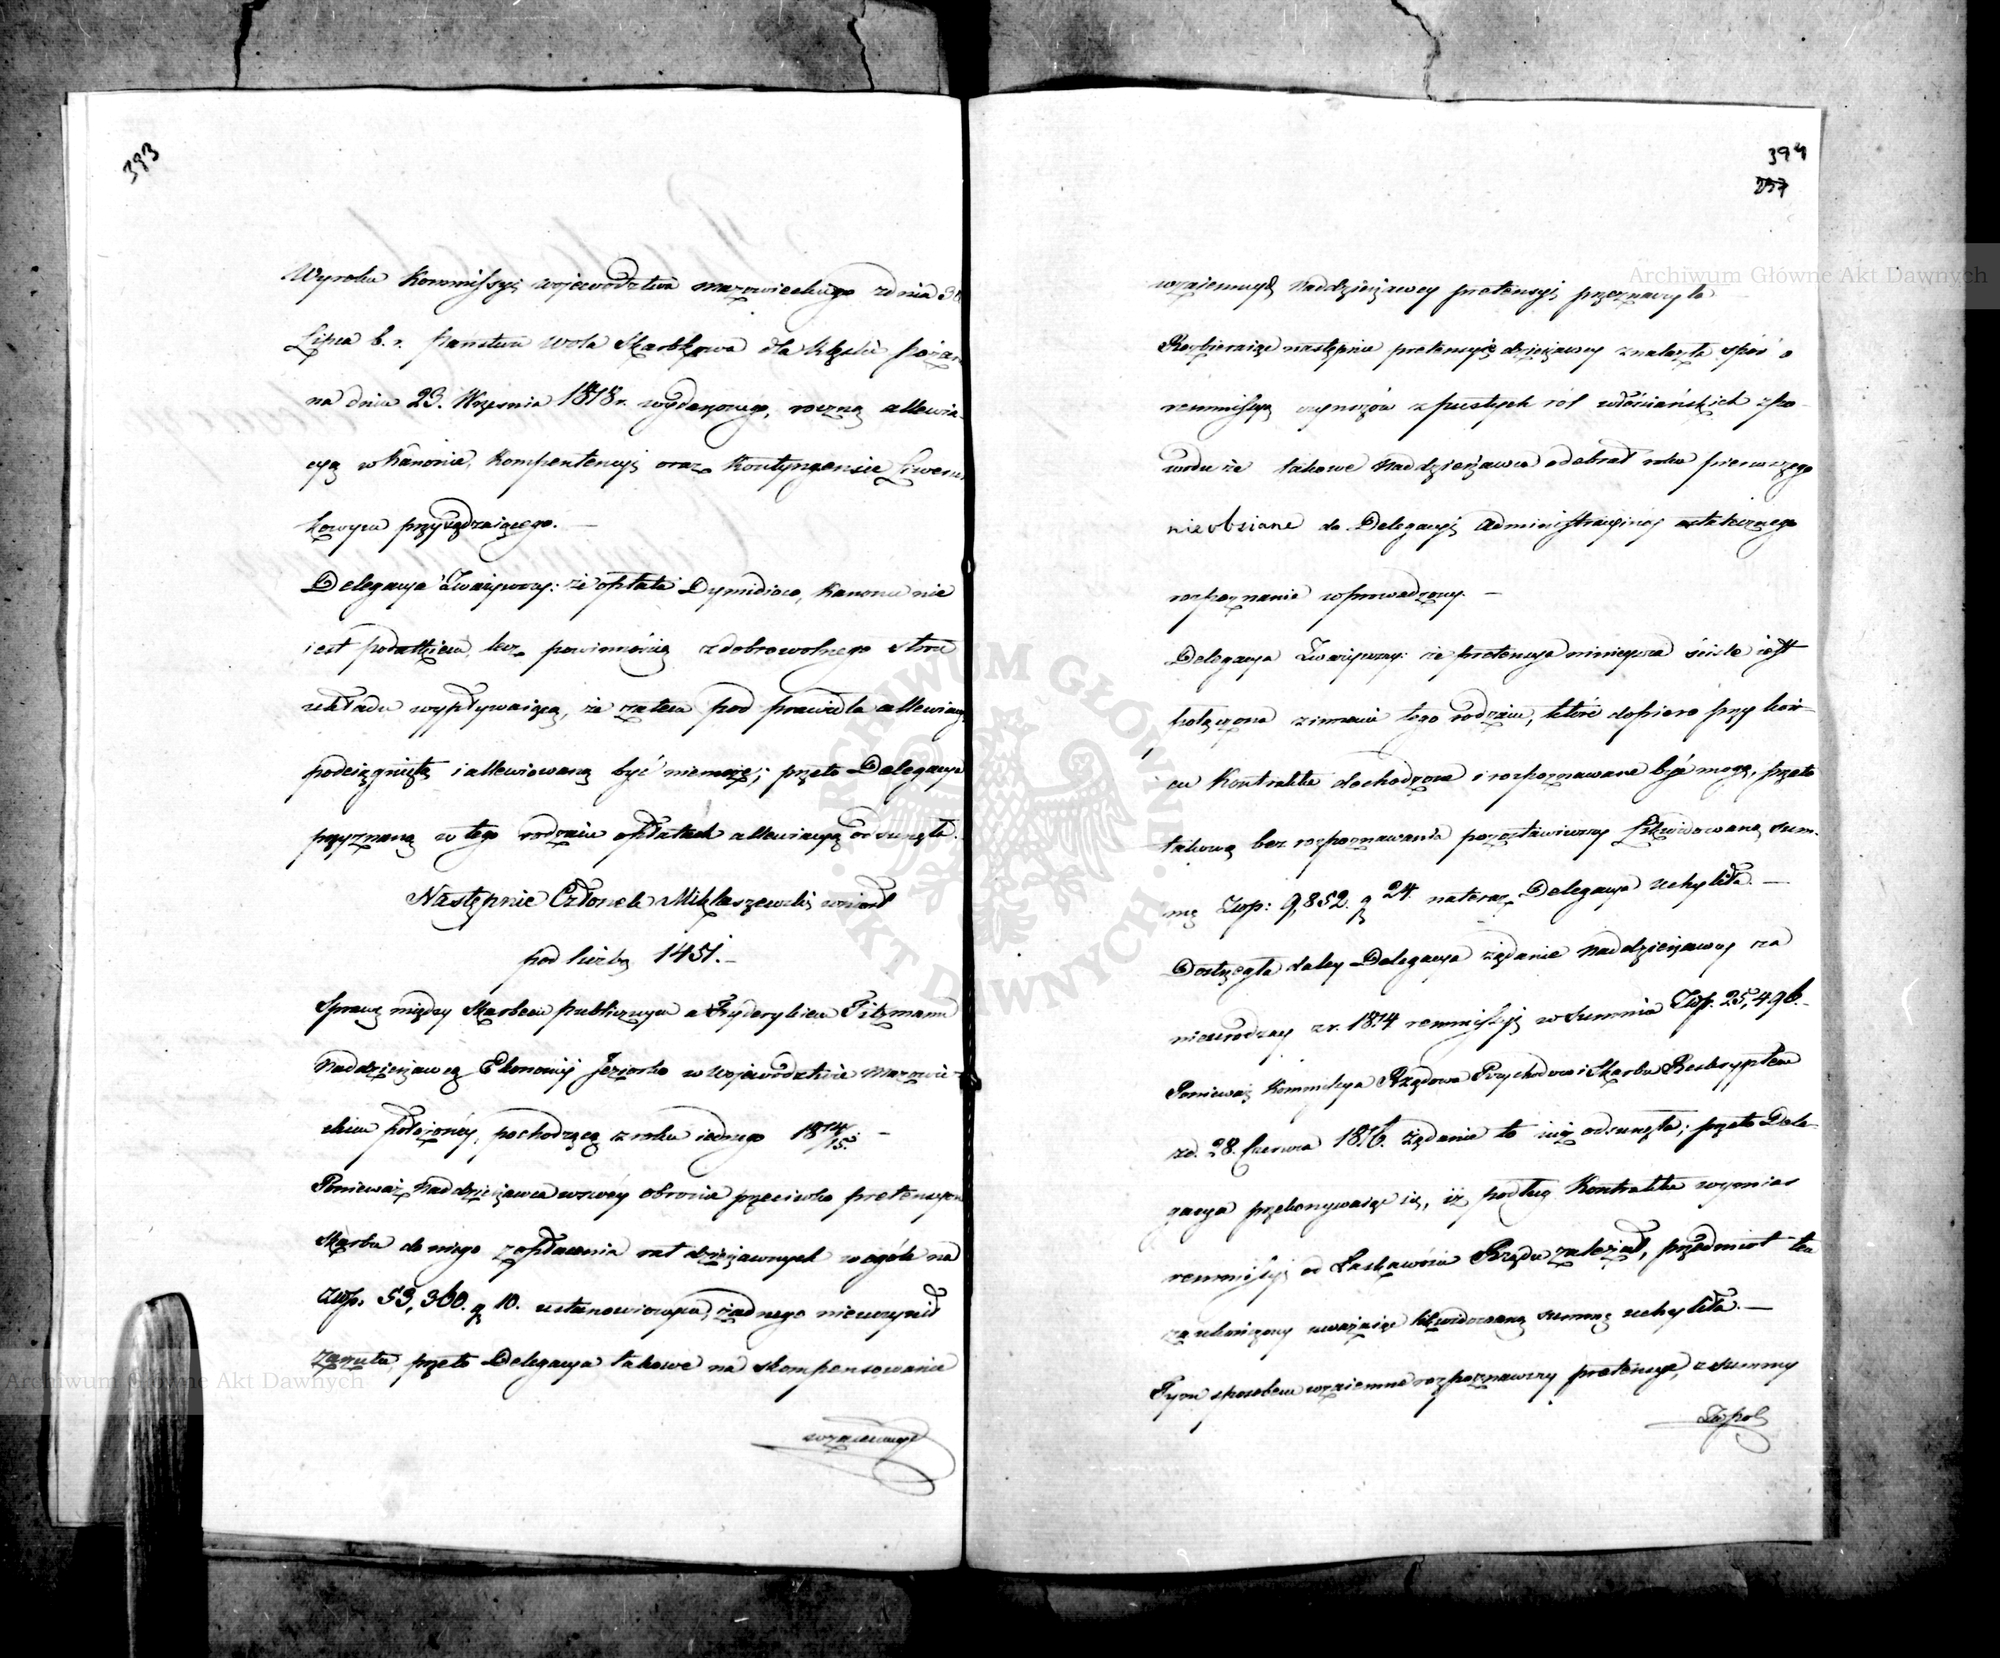 393
Wyroku Kommissyi Województwa Mazowieckiego z dnia 30
Lipca b. r. Państwu Wola Skarbkowa dla klęski pożaru
na dniu 23. Września 1818 r. wydarzonego, roczną allewia-
cyą w kanonie, kompetencyi oraz kontyngensie Liwerun-
kowym przysądzaiącego. —
Delegacya Zważywszy: że opłata Dymidiow, kanonu nie
iest podatkiem, lecz powinnością z dobrowolnego stron
układu wypływaiącą, że zatem pod prawidła allewiacyi
podciągniętą i allewiowaną być niemoże; przeto Delegacya
przyznaną w tego rodzaiu opłatach allewiacyą odsunęła.
Następnie Członek Miklaszewski wniósł
pod liczbą 1451. —
Sprawę między Skarbem publicznym a Fryderykiem Titzmann
Naddzierżawcą Ekonomij Jeziorka w Województwie Mazowie-
ckim położonéy, pochodzącą z roku iednego 1814/15. —
Ponieważ Naddzierżawca w swéy obronie przeciwko pretensyom
Skarbu do niego zapłacenia rat dzierżawnych w ogóle na
Złłp. 53,360. g 10. ustanowionym, żadnego nieuczynił
zarzutu, przeto Delegacya takowe na skompensowanie
wzaiemnych
394
257
wzajemnych Naddzierżawcy pretensyi przeznaczyła —
Rozbieraiąc następnie pretensyie dzierżawcy znalazła spór o
remmissyą czynszów z pustych ról włościańskich z po-
wodu że takowe Naddzierżawca odebrał roku pierwszego
nieobsiane do Delegacyi Administracyinéj ostatecznego
rozpoznania wprowadzony. —
Delegacya Zważywszy: że pretensya niniejsza ściśle iest
połączona z innemi tego rodzaiu, które dopiero przy koń-
cu Kontraktu dochodzone i rozpoznawane być mogą, przeto
takową bez rozpoznawania pozostawiwszy Likwidowaną sum-
mę Złłp: 9,852. g 24. na teraz Delegacya uchyliła. —
Dostrzegła daley Delegacya żądanie Naddzierżawcy za
nieurodzay z r. 1814 remmissyi w summie Złłp. 25,496. —
Ponieważ Kommissya Rządowa Przychodów i Skarbu Reskryptem
z d. 28. Czerwca 1816. żądanie to iuż odsunęła; przeto Dele-
gacya przekonywaiąc się, iż podług Kontraktu wymiar
remmissyi od Łaskawości Rządu zależał, przedmiot ten
za ukończony uważaiąc likwidowaną summę uchyliła. —
Tym sposobem wzaiemne rozpoznawszy pretensye, z summy
Złłpol
Archiwum Główne Akt Dawnych
Archiwum Główne Akt Dawnych
ARCHIWUM GŁÓWNE AKT DAWNYCH